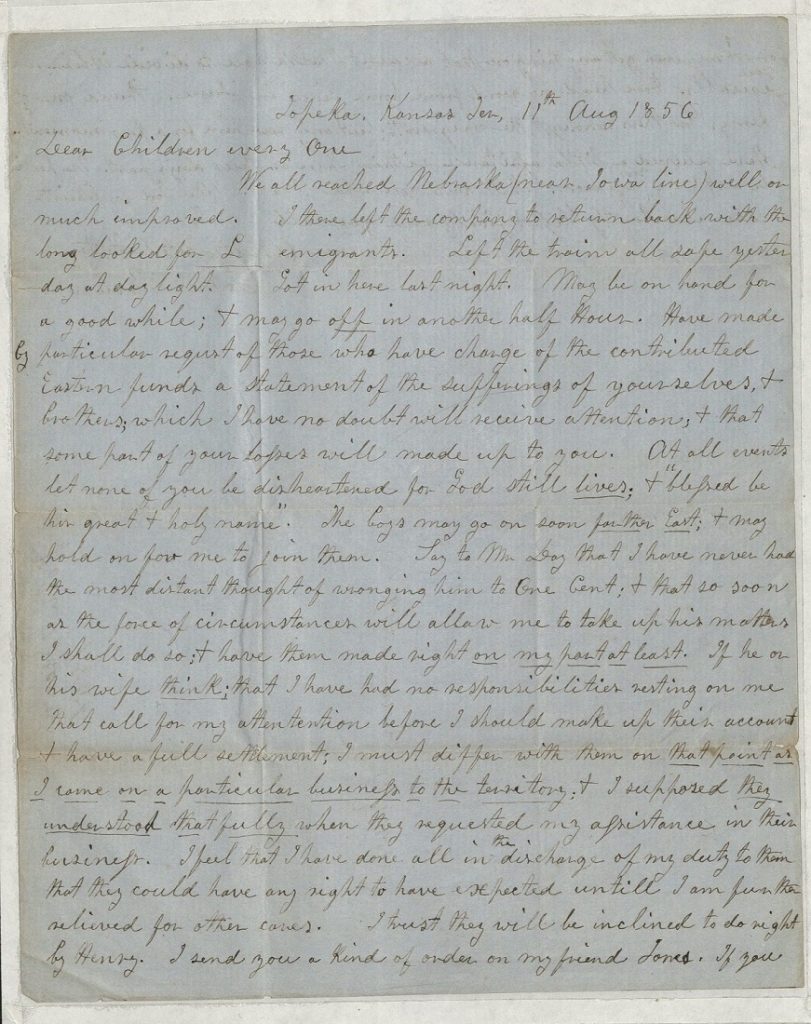 Topeka, Kansas Ter, 11th Aug 1856
Dear Children every One
We all reached Nebraska (near Iowa line) well or
much improved. I there left the company to return back with the
long looked for L emigrants. Left the train all safe yester
day at day light. Got in here last night. May be on hand for
a good while; & may go off in another half Hour. Have made
by particular requst of those who have charge of the contributed
Eastern funds a statement of the sufferings of yourselves, &
brothers; which I have no doubt will receive attention; & that
some part of your losses will made up to you. At all events
let none of you be disheartened for God still lives; & "blessed be
his great & holy name". The boys may go on soon further East; & may
hold on for me to join them. Say to Mr Day that I have never had
the most distant thought of wronging him to One Cent; & that so soon
as the force of circumstances will allow me to take up his matters
I shall do so; & have them made right on my part at least. If he or
his wife think; that I have had no responsibilities resting on me
that call for my attentention before I should make up their account
& have a full settlement; I must differ with them on that point as
I came on a particular business to the territory; & I supposed they
understood that fully when they requested my assistance in their
business. I feel that I have done all in the discharge of my duty to them
that they could have any right to have expected untill I am further
relieved for other cares. I trust they will be inclined to do right
by Henry. I send you a kind of order on my friend Jones. If you